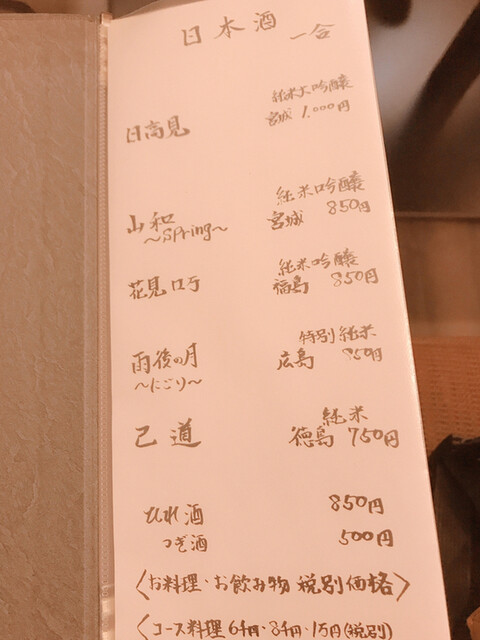 日本酒 一合
純米大吟醸
日高見 宮城 1,000円
純米吟醸
山和 宮城 850円
~spring~
純米吟醸
花見ロ万 福島 850円
特別純米
雨後の月 広島 850円
~にごり~
純米
己道 徳島 750円
ひれ酒 850円
つぎ酒 500円
〈お料理・お飲み物 税別価格〉
〈コース料理 6千円・8千円・1万円(税別)